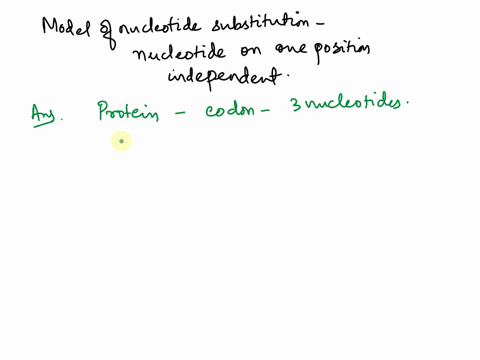 Model of nucleotide substitution -
nucleotide on one position
independent.
Ans. Protein - codon - 3 nucleotides.